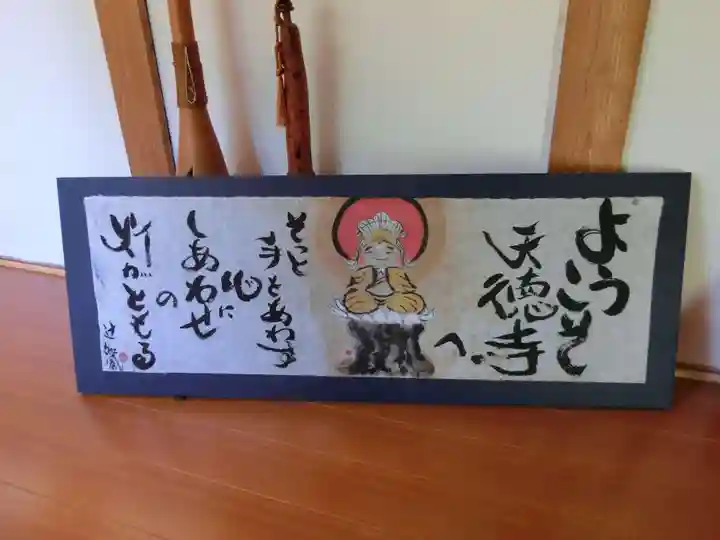 ようこそ
天徳寺
へ
そっと
手をあわす
心に
しあわせ
の
灯がともる